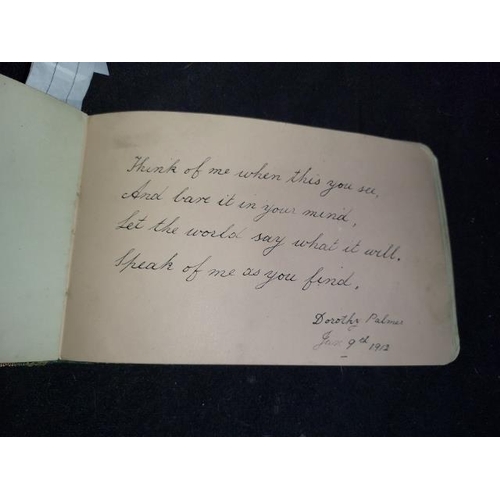 Think of me when this you see,
And bare it in your mind,
Let the world say what it will.
Speak of me as you find.
Dorothy Palmer
9th 1912